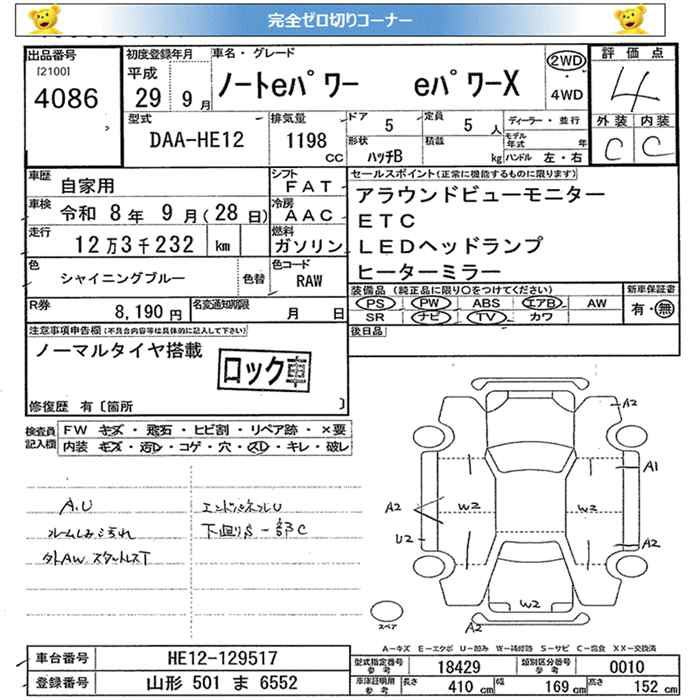 完全ゼロ切りコーナー
出品番号 初度登録年月 車名・グレード 評価点
[2100] 平成 ノートeパワー eパワーX 2WD
4086 29年9月 ・ 4WD 4
型式 排気量 ドア 5 定員 5人 ディーラー・並行 外装 内装
DAA-HE12 1198 cc 形状 ハッチB 積載 kg モデル年式 年 ハンドル 左・右 C C
車歴 自家用 シフト FAT セールスポイント(正常に機能するものに限ります)
車検 令和 8年 9月(28日) 冷房 AAC アラウンドビューモニター
ETC
走行 12万3千232 km 燃料 ガソリン LEDヘッドランプ
色 シャイニングブルー 色替 色コード RAW ヒーターミラー
装備品 (純正品に限り○をつけてください) 新車保証書
R券 8,190円 名変通知期限 月 日 PS PW ABS エアB AW 有・無
SR ナビ TV カワ
注意事項申告欄(不具合内容等は具体的に記入して下さい) 後日品
ノーマルタイヤ搭載
ロック車
修復歴 有〔箇所 〕
検査員記入欄 FW キズ・飛石・ヒビ割・リペア跡・×要
内装 キズ・汚れ・コゲ・穴・スレ・キレ・破レ
A2
A1
A.U エンドパネルU A2 W2 W2
フレームしみよごれ 下廻りS-部C U2 A2
外AW スタートレスT
W2
スペア A2
A-キズ E-エクボ U-凹み W-補修跡 S-サビ C-腐食 XX-交換済
車台番号 HE12-129517 型式指定番号 参考 18429 類別区分番号 参考 0010
登録番号 山形 501 ま 6552 車庫証明用 参考 長さ 410 cm 幅 169 cm 高さ 152 cm